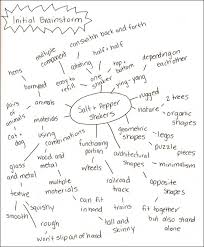 Initial Brainstorm
can switch back and forth
multiple
component
half + half
depending on
each other
hens
rotating
top +
bottom
barnyard
easy to
refill
one
shaker
ying-yang
pairs
of
animals
animals
rugged
2 trees
nature
organic
shapes
Salt + Pepper
Shakers
cat +
dog
using
combinations
materials
geometric
shapes
legos
puzzle
pieces
glass
and
metal
wood and
metal
functioning
portion
architectural
shapes
minimalism
wheels
texture
multiple
materials
railroad
track
opposite
shapes
squishy
smooth
rough
can fit
in hand
trains
fit together
but also stand
alone
tall and
skinny
won't slip out of hand